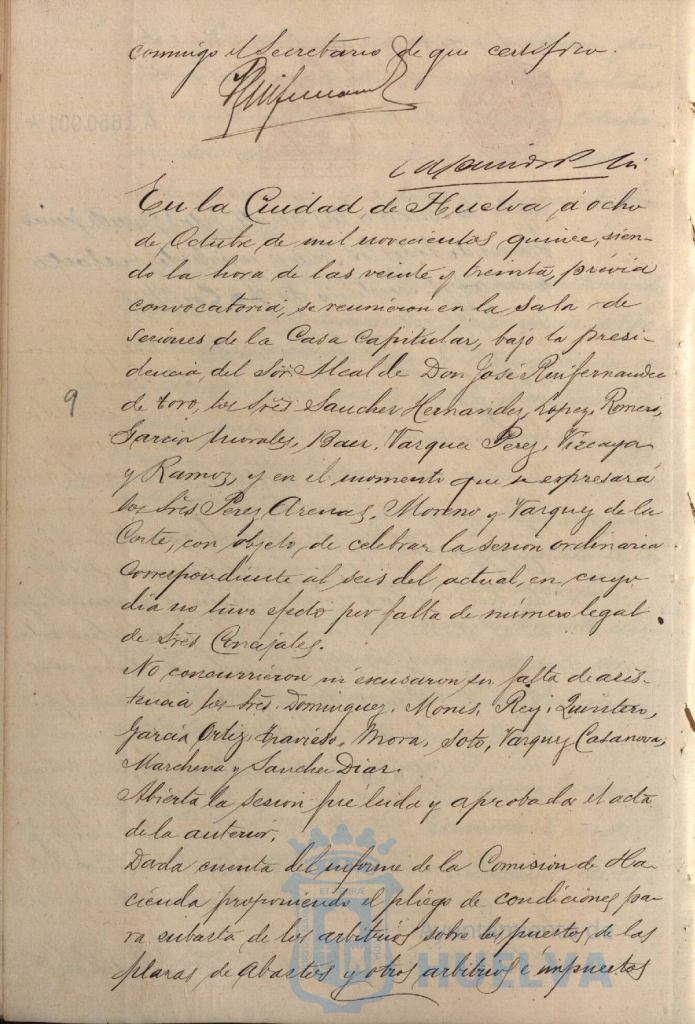 conmigo el Secretario de que certifico.
En la Ciudad de Huelva á ocho
de Octubre de mil novecientos quince, sien-
do la hora de las veinte y treinta, prévia
convocatoria, se reunieron en la Sala de
Seciones de la Casa Capitular, bajo la presi-
dencia, del Sõr. Alcalde Don José Ruifernandez
de toro, los Srẽs Sanchez Hernandez, Lopez, Romero,
9
Garcia Morales, Baez, Vazquez Perez, Vizcaya
y Ramos, y en el momento que se expresará
los Srẽs Perez, Arenas, Moreno y Vazquez de la
Corte, con objeto de celebrar la sesion ordinaria
correspondiente al seis del actual, en cuyo
dia no tuvo efecto por falta de número legal
de Srẽs Concejales.
No concurrieron ni escusaron su falta de asis-
tencia los Srẽs. Dominguez, Mones, Rey, Quintero,
García Ortiz, travieso, Mora, Soto, Vazquez Casanova,
Marchena y Sanchez Diaz.
Abierta la sesion fué leida y aprobada el acta
de la anterior.
Dada cuenta del informe de la Comision de Ha-
cienda proponiendo el pliego de condiciones pa-
ra subasta de los arbitrios sobre los puestos de las
plazas de Abastos y otros arbitrios é impuestos
HUELVA